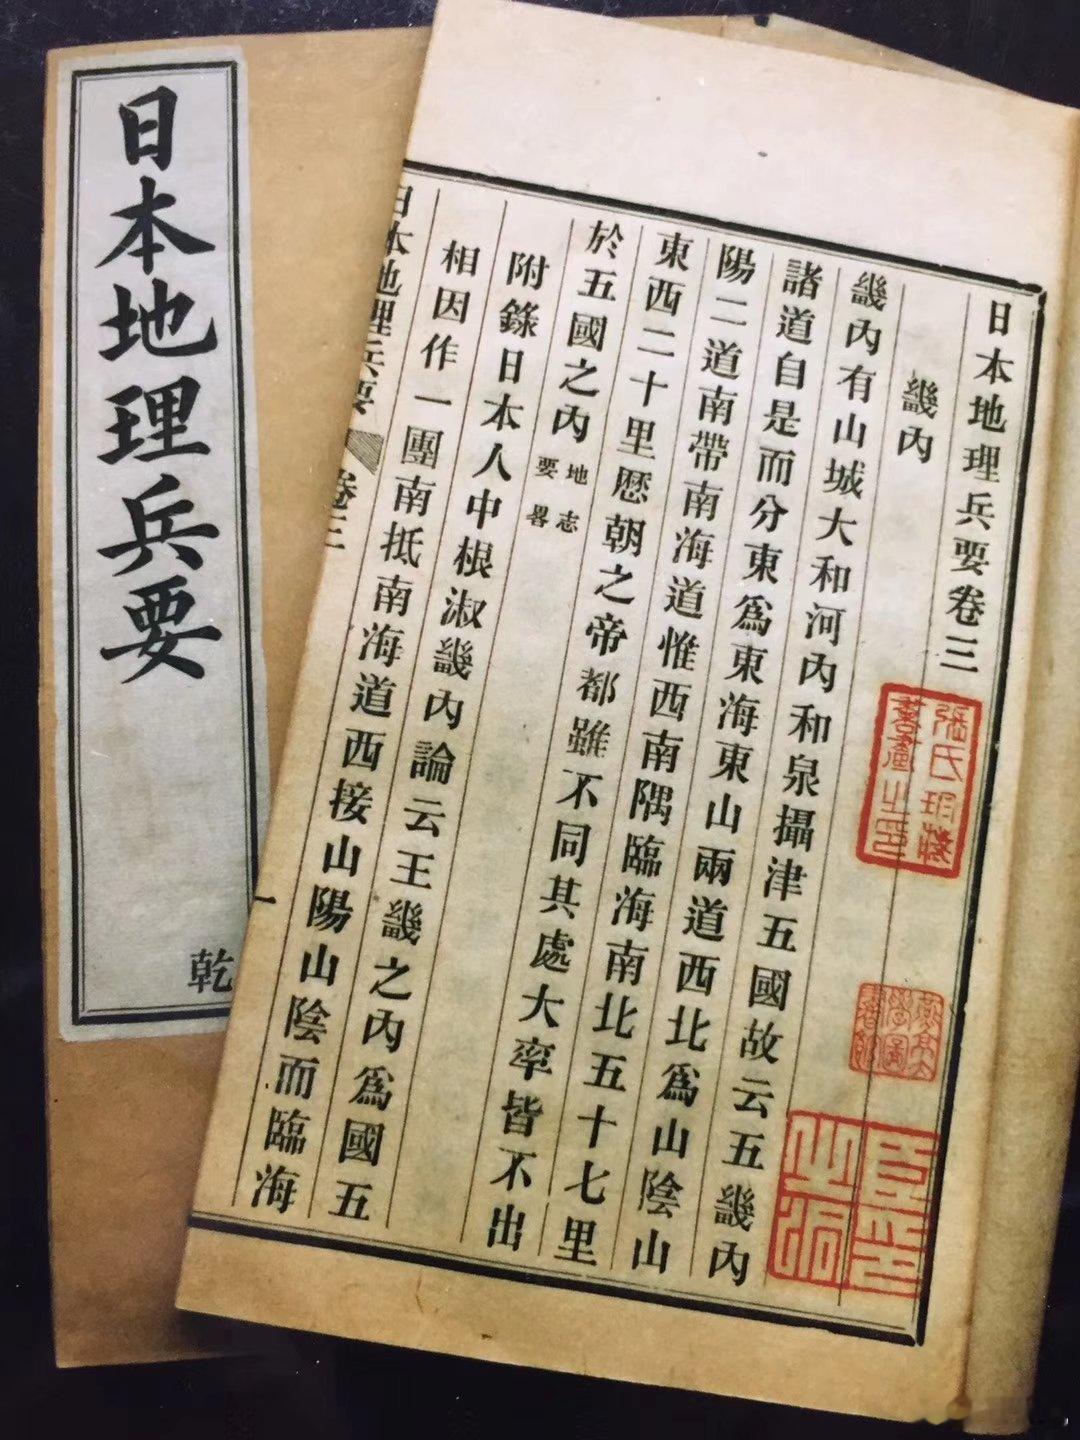 日本地理兵要
乾
日本地理兵要卷三
畿內
畿內有山城大和河內和泉攝津五國故云五畿內
諸道自是而分東爲東海東山兩道西北爲山陰山
陽二道南帶南海道惟西南隅臨海南北五十七里
東西二十里厯朝之帝都雖不同其處大率皆不出
於五國之內地志要畧
附錄日本人中根淑畿內論云王畿之內爲國五
相因作一團南抵南海道西接山陽山陰而臨海
日本地理兵要 卷三 一